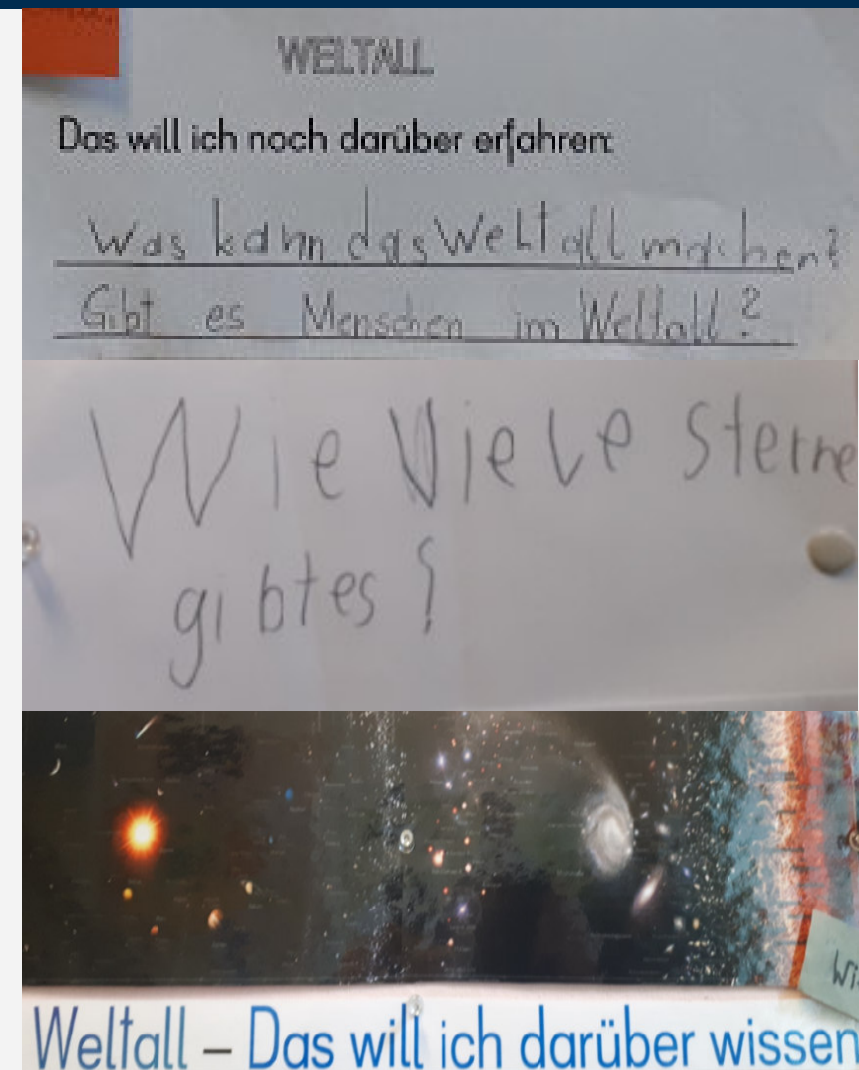 WELTALL
Das will ich noch darüber erfahren:
Was kann das Weltall machen?
Gibt es Menschen im Weltall?
Wie Viele Sterne
gibtes?
Weltall – Das will ich darüber wissen